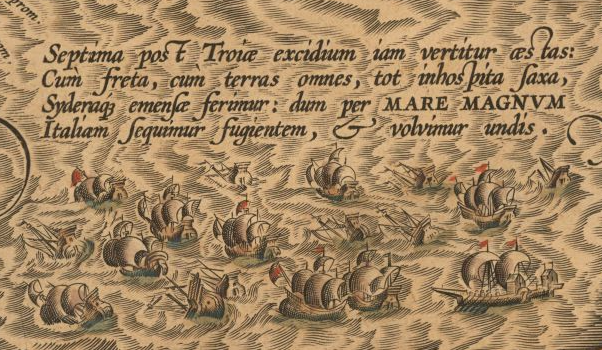 prom.
Septima post Troiæ excidium iam vertitur æstas:
Cum freta, cum terras omnes, tot inhospita ſaxa,
Syderaq; emenſæ ferimur: dum per MARE MAGNVM
Italiam ſequimur fugientem, & volvimur undis.